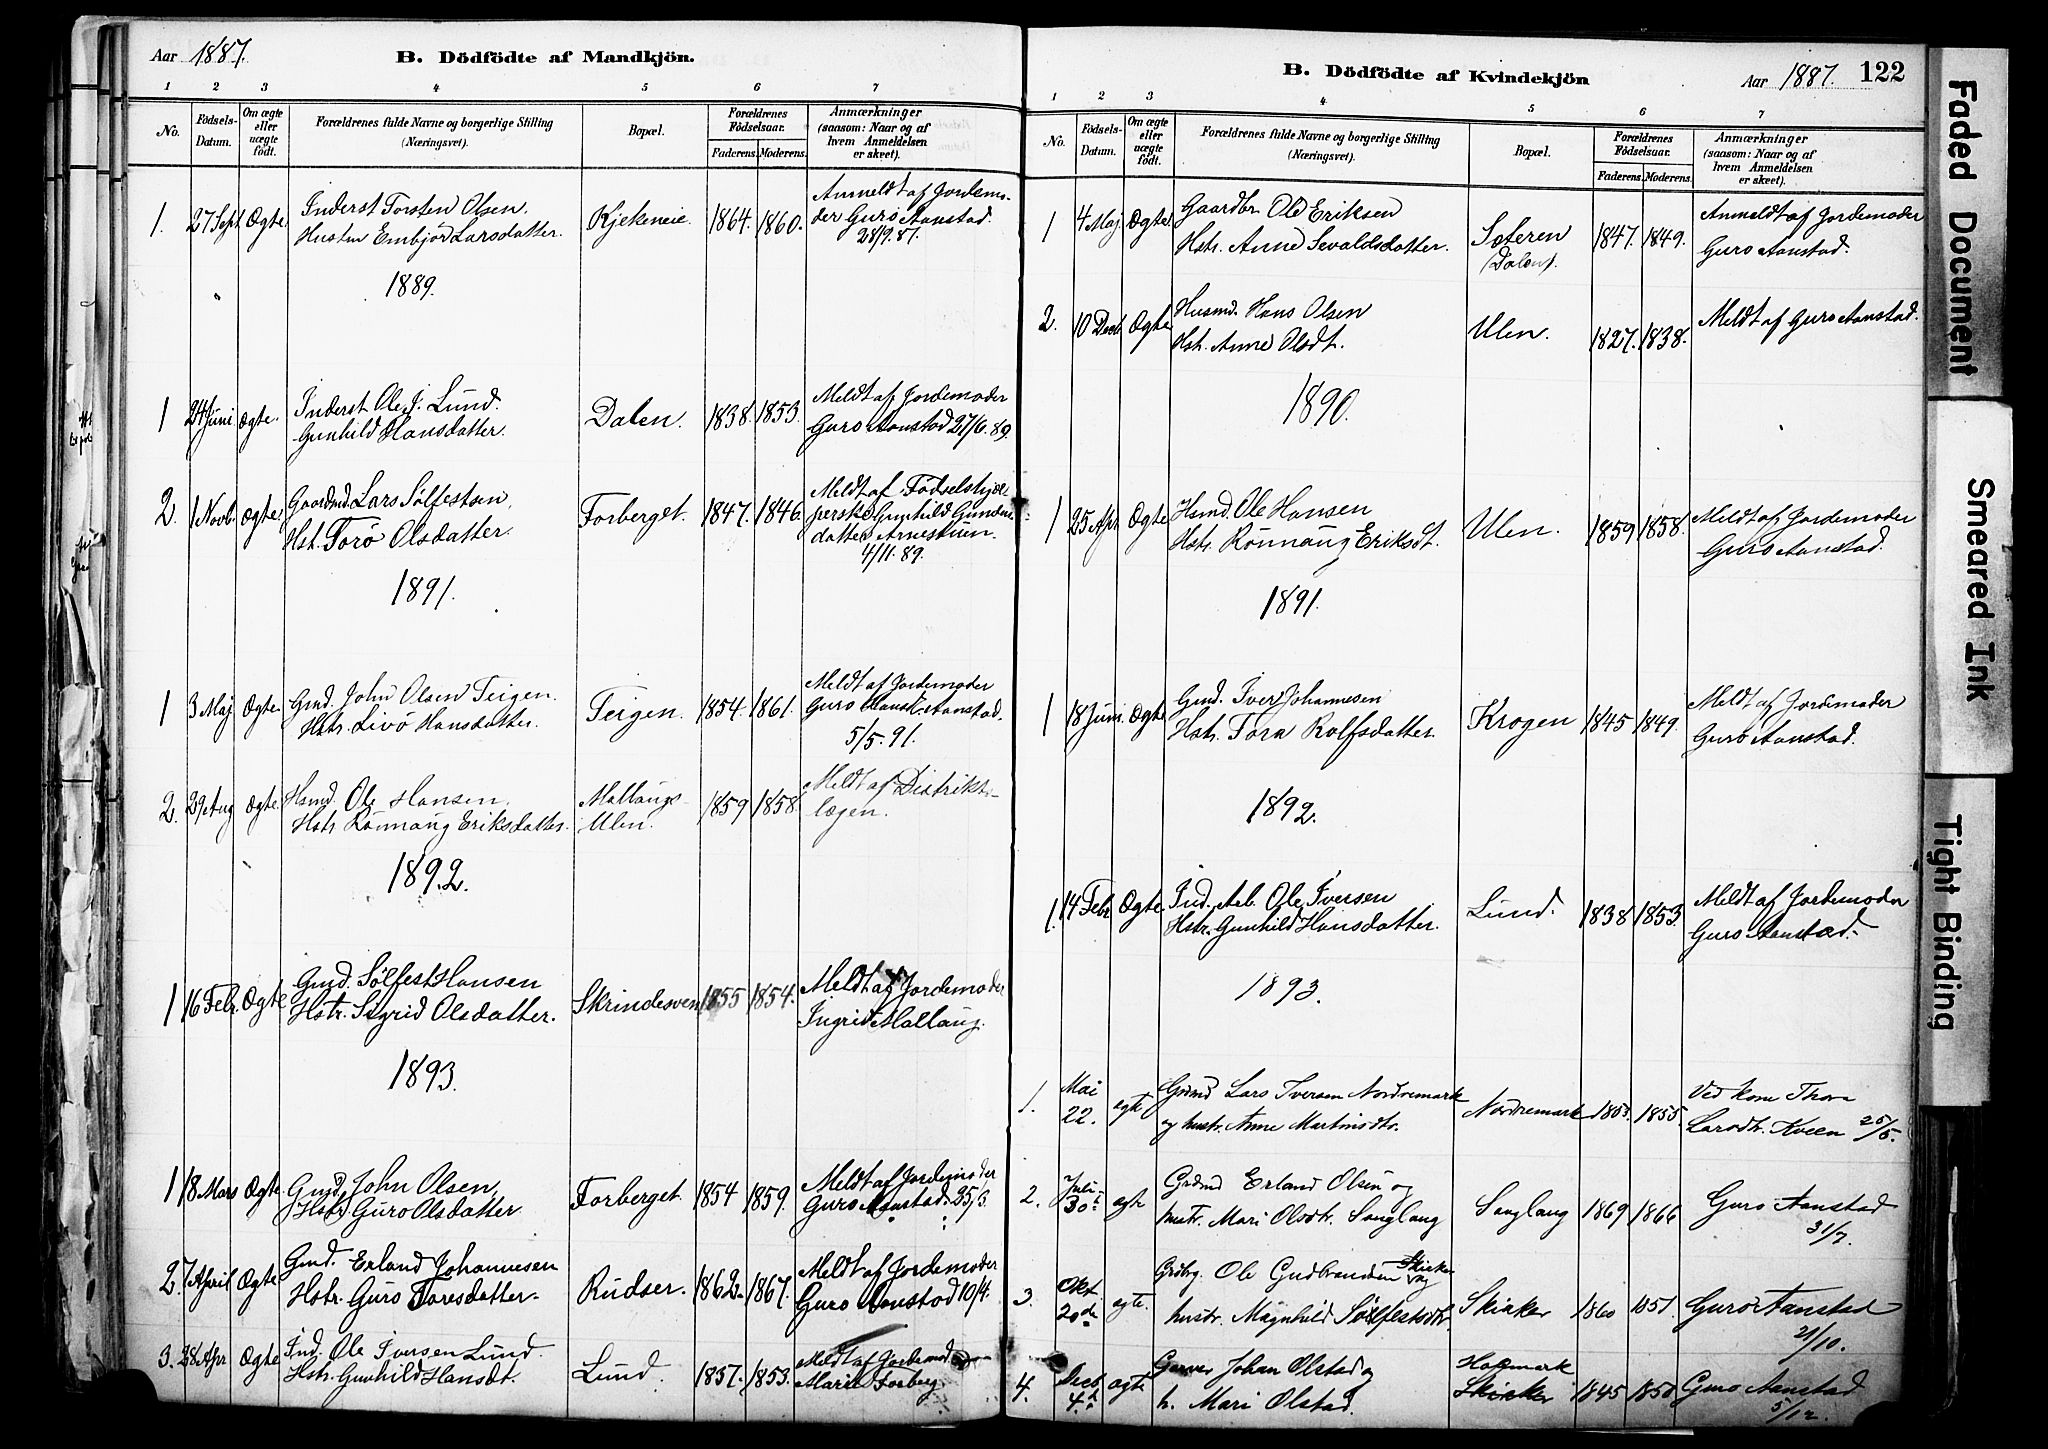 Aar 1887.
B. Dödfödte af Mandkjön.
1 2 3 4 5 6 7
No.
Födsels-
Datum.
Om ægte
eller
uægte
födt.
Forældrenes fulde Navne og borgerlige Stilling
(Næringsvei).
Bopæl.
Forældrenes
Födselsaar.
Faderens. Moderens.
Anmærkninger
(saasom: Naar og af
hvem Anmeldelsen
er skeet).
1. 27 Sept Ægte. Inderst Torsten Olsen. Kjekeneie. 1864. 1860. Anmeldt af Jordemo-
Hustru Embjør Larsdatter. der Guro Aanstad.
28/9.87.
1889.
1 24 Juni Ægte. Inderst Ole J. Lund. Dalen. 1838. 1853. Meldt af Jordemoder
Gunhild Hansdatter. Guro Aanstad 27/6.89.
2. 1 Novb. Ægte. Gaardmd. Lars Sølfestsen, Forberget. 1847. 1846. Meldt af Fødselshjæl-
Hst. Torø Olsdatter. perske Gunhild
datter
4/11.89.
1891.
1 3 Maj Ægte. Gmd. John Olsen Teigen. Teigen. 1854. 1861. Meldt af Jordemoder
Hstr. Livø Hansdatter. Guro Aanstad.
5/5.91.
2. 29 Aug Ægte. Hsmd. Ole Hansen, Mallaugs- 1859 1858. Meldt af Distrikts-
Hstr. Rønnaug Eriksdatter. Ulen. lægen.
1892.
1 16 Febr. Ægte Gmd. Sølfest Hansen Skrindesven 1855 1854. Meldt af Jordemoder
Hstr. Sigrid Olsdatter. Ingrid Mallaug.
1893.
1 18 Mars Ægte. Gmd. John Olsen, Forberget. 1854 1859. Meldt af Jordemoder
Hstr. Guro Olsdatter Guro Aanstad. 25/3.
2 7 April Ægte Gmd. Erland Johannesen Rudser. 1862. 1867. Meldt af Jordemoder
Hstr. Guro Toresdatter. Guro Aanstad 10/4.
3. 28 Apr Ægte Ind. Ole Iversen Lund. Lund. 1837. 1853. Meldt af Jordemod
Hstr. Gunhild Hansdt. Marit Forberg.
B. Dödfödte af Kvindekjön
Aar 1887. 122
1 2 3 4 5 6 7
No.
Födsels-
Datum.
Om ægte
eller
uægte
födt.
Forældrenes fulde Navne og borgerlige Stilling
(Næringsvei).
Bopæl.
Forældrenes
Födselsaar.
Faderens. Moderens.
Anmærkninger
(saasom: Naar og af
hvem Anmeldelsen
er skeet).
1 4 Maj. Ægte. Gaardbr. Ole Eriksen Sæteren 1847. 1849. Anmeldt af Jordemoder
Hstr. Anne Sevaldsdatter. (Dalen). Guro Aanstad.
2. 10 Decb. Ægte Husmd. Hans Olsen Ulen. 1827. 1838. Meldt af Guro Aanstad.
Hst. Anne Olsdt.
1890.
1 25 Apr. Ægte Hsmd. Ole Hansen Ulen. 1859 1858. Meldt af Jordemoder
Hstr. Rønnaug Eriksdt. Guro Aanstad.
1891.
1 18 Juni Ægte Gmd. Iver Johannesen Krogen 1845 1849. Meldt af Jordemoder
Hstr. Tora Rolfsdatter. Guro Aanstad.
1892.
1. 14 Febr Ægte. Ind. Arb. Ole Iversen Lund. 1838 1853. Meldt af Jordemoder
Hstr. Gunhild Hansdatter. Guro Aanstad.
1893.
1. Mai 22. ægte Grdmd Lars Iversen Nordremark Nordremark 1853. 1855. Ved kone Thora
og hustr. Anne Martinsdtr. Larsdtr. Kveen 25/5.
2. Juli 30te ægte Grdmd Erland Olsen og Sauglaug 1869 1866 Guro Aanstad
hustr. Mari Olsdtr. Sauglaug 31/7.
3. Okt 20de ægte. Grdbrg. Ole Gudbrandsen Skjæker og Skjæker 1860 1857. Guro Aanstad
hustr. Magnhild Sølfestsdtr. 21/10.
4. Decb 4de ægte Garver Johan Olstad og Skjæker 1845 1850 Guro Aanstad
h. Mari Olstad. 5/12.
Faded Document
Smeared Ink
Tight Binding